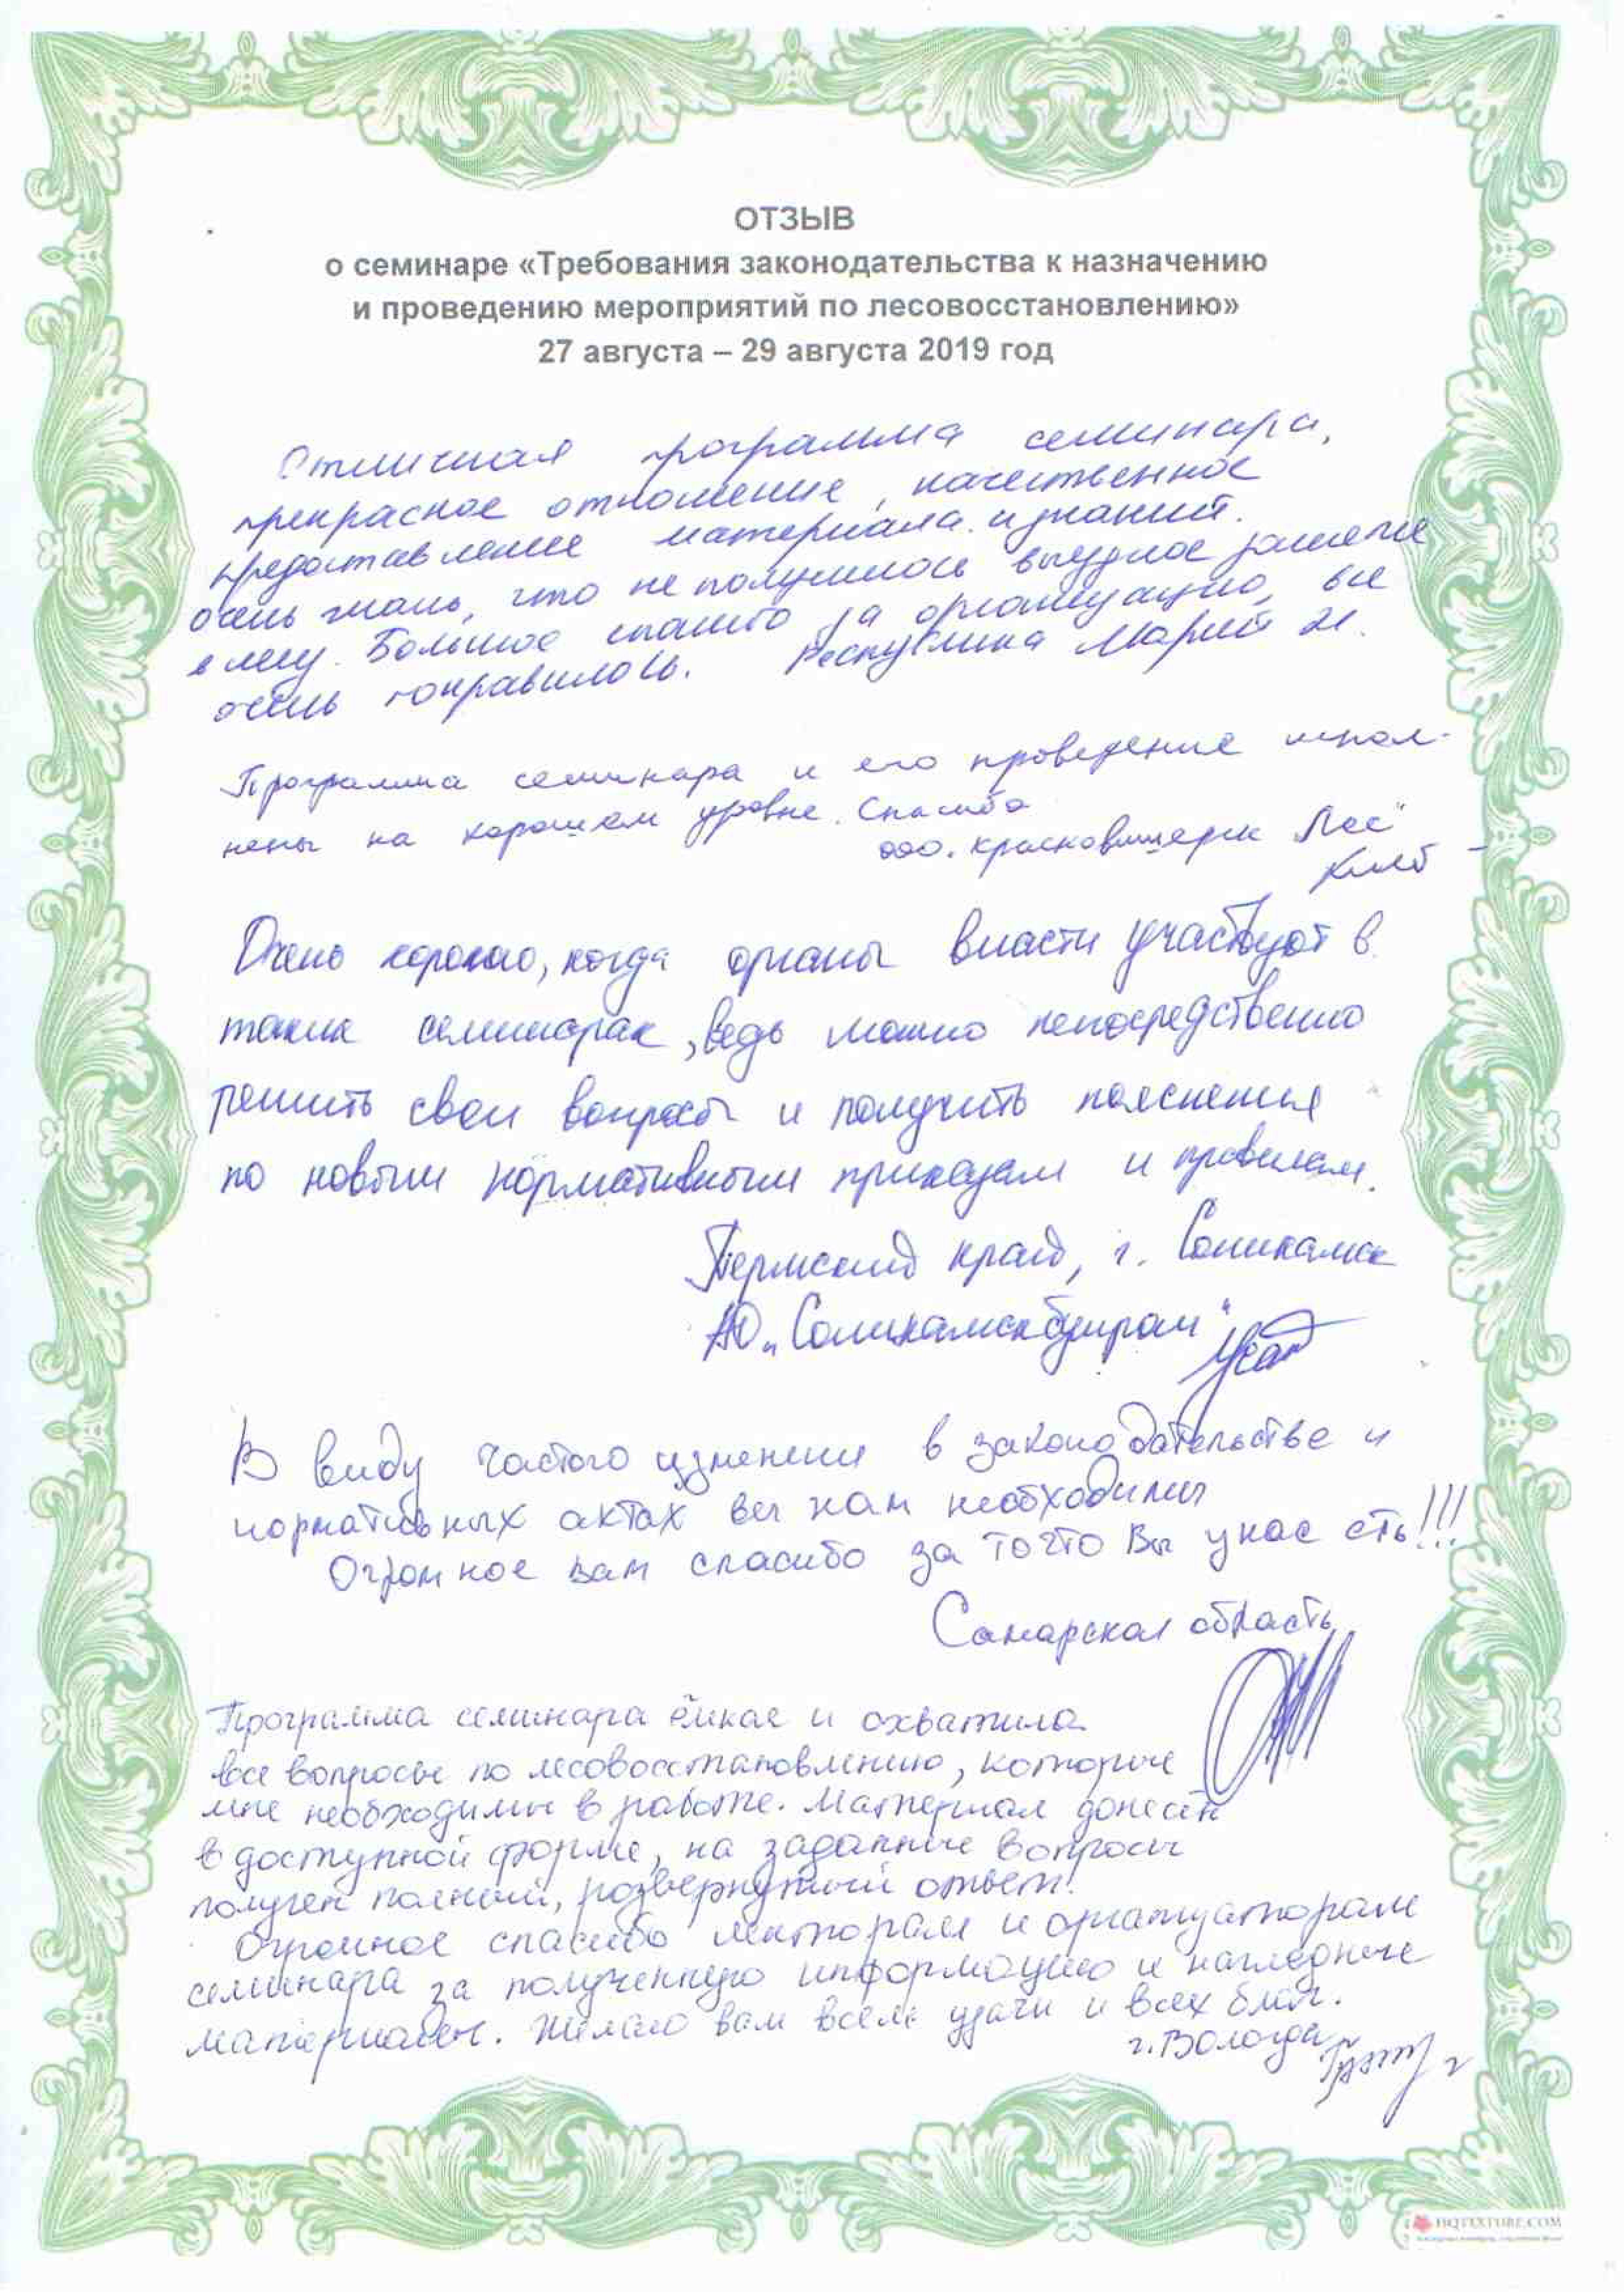 ОТЗЫВ
о семинаре «Требования законодательства к назначению
и проведению мероприятий по лесовосстановлению»
27 августа – 29 августа 2019 год
Отличная программа семинара,
прекрасное отношение, качественное
предоставление материала и знаний.
очень жаль, что не получилось выездное занятие
в лесу. Большое спасибо за организацию, все
очень понравилось. Республика Марий Эл.
Программа семинара и его проведение испол-
нены на хорошем уровне. Спасибо
ооо. Красновишерск "Лес"
Очень хорошо, когда органы власти участвуют в
таких семинарах, ведь можно непосредственно
решить свои вопросы и получить пояснения
по новым нормативным приказам и правилам.
Пермский край, г. Соликамск
АО „Соликамскбумпром"
В виду частого изменени в законодательстве и
нормативных актах вы нам необходимы
Огромное вам спасибо за то что Вы у нас есть!!!
Самарская область
Программа семинара ёмкая и охватила
все вопросы по лесовосстановлению, которые
мне необходимы в работе. Материал донесён
в доступной форме, на заданные вопросы
получен полный, развернутый ответ.
Огромное спасибо лекторам и организаторам
семинара за полученную информацию и наглядные
материалы. Желаю вам всем удачи и всех благ.
г. Вологда
HQTEXTURE.COM